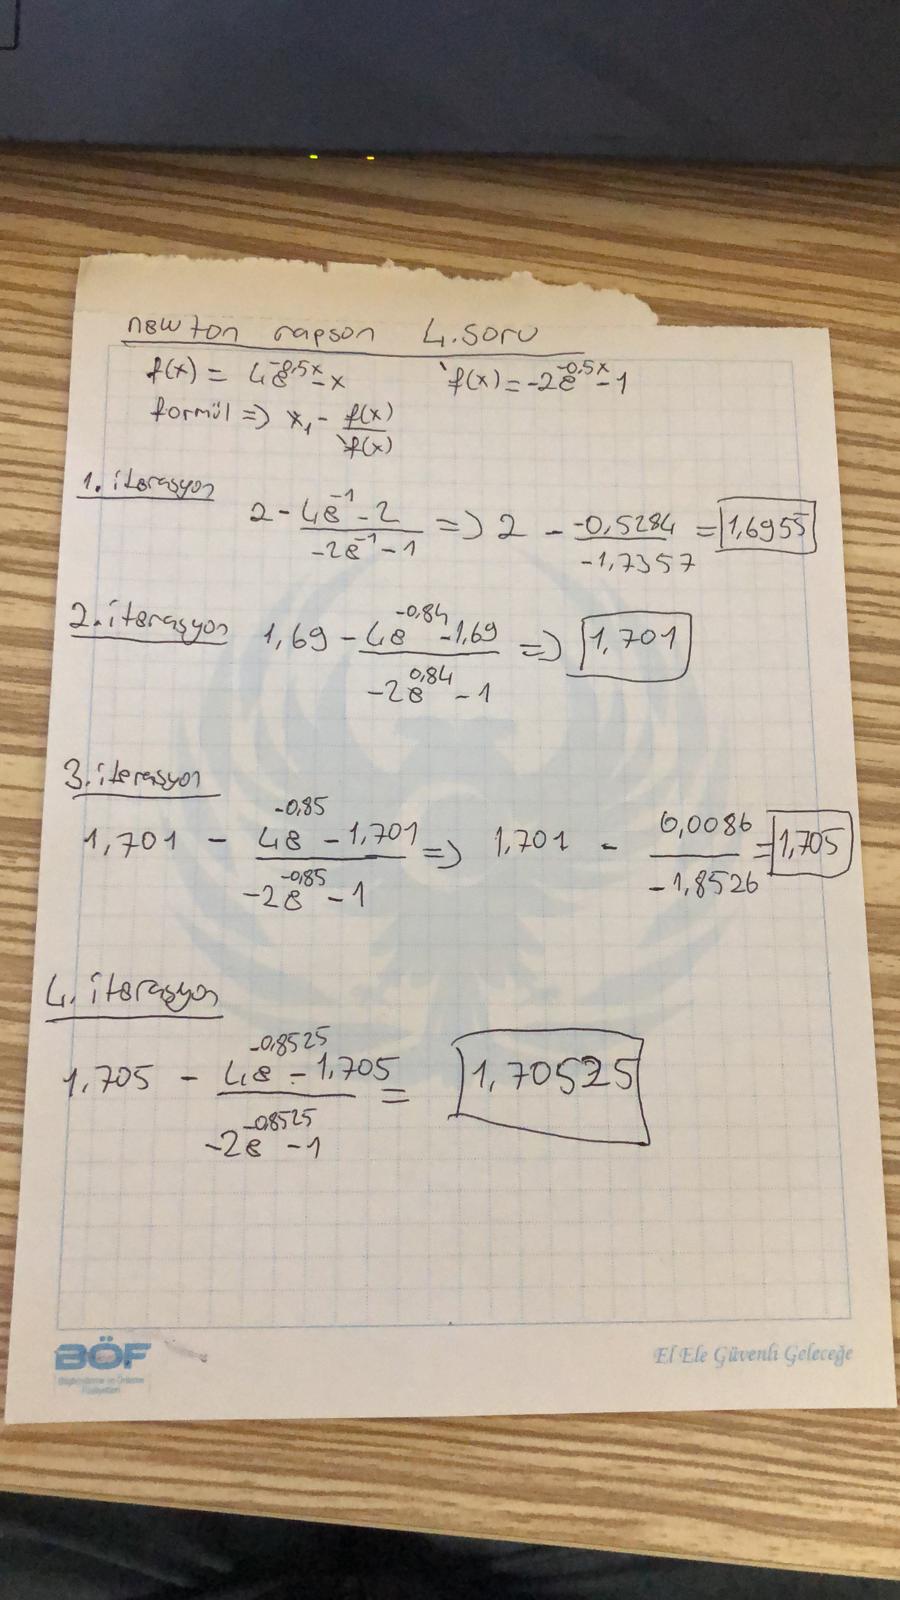 newton rapson 4. soru
f(x) = 4e^-0,5x - x    `f(x) = -2e^-0,5x - 1
formül => x₁ - f(x) / `f(x)
1. iterasyon
2 - (4e^-1 - 2) / (-2e^-1 - 1) => 2 - (-0,5284) / (-1,7357) = 1,6955
2. iterasyon
1,69 - (4e^-0,84 - 1,69) / (-2e^0,84 - 1) => 1,701
3. iterasyon
1,701 - (4e^-0,85 - 1,701) / (-2e^-0,85 - 1) => 1,701 - 0,0086 / (-1,8526) = 1,705
4. iterasyon
1,705 - (4e^-0,8525 - 1,705) / (-2e^-0,8525 - 1) = 1,70525
BÖF
El Ele Güvenli Geleceğe